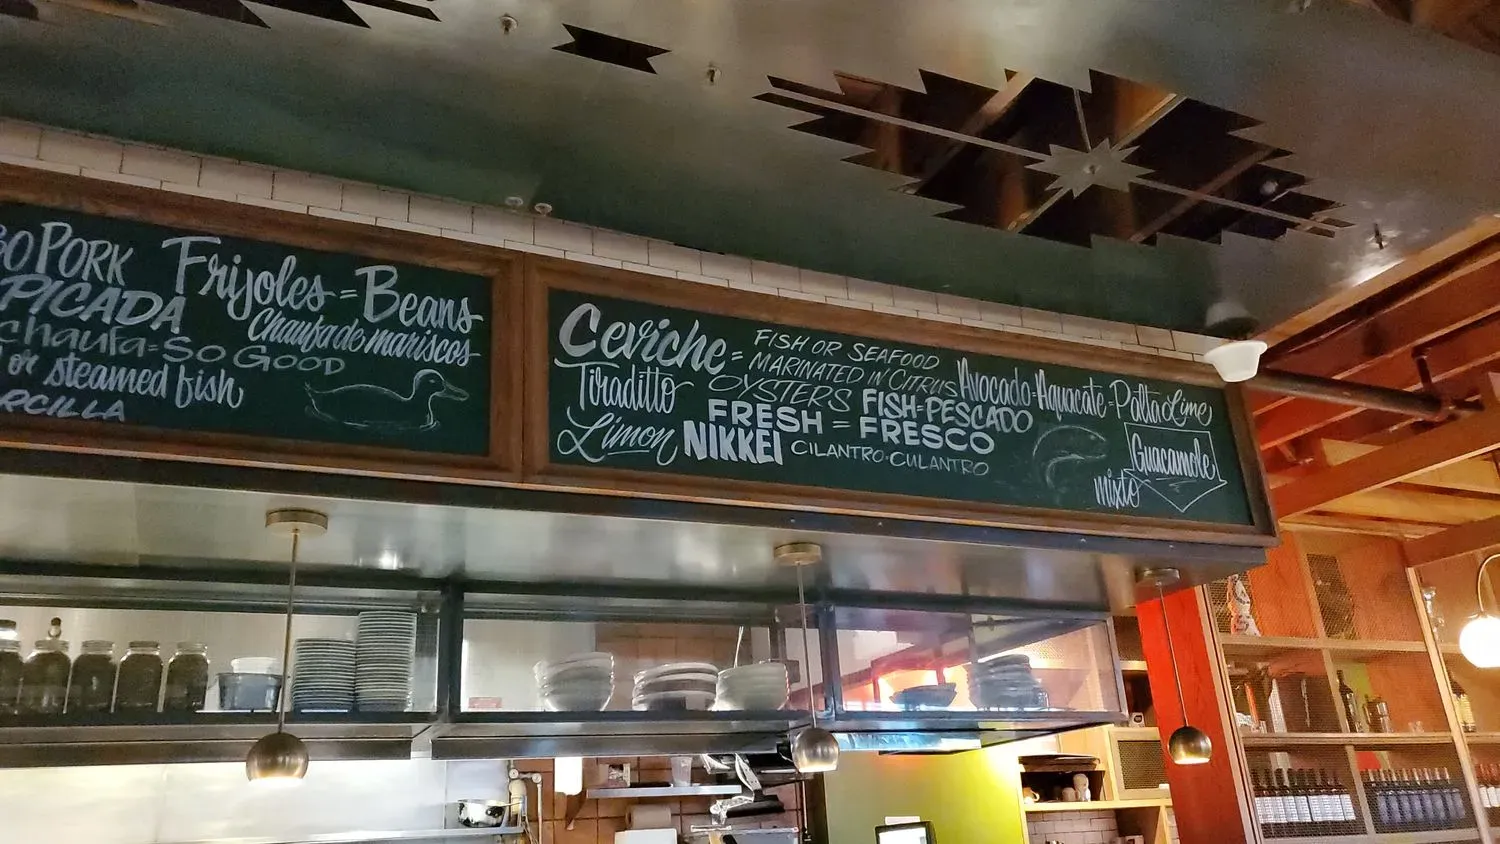 PORK
PICADA
Chaufa = SO GOOD
or steamed fish
Frijoles = Beans
Chaufa de mariscos
Ceviche = FISH OR SEAFOOD
MARINATED IN CITRUS
Tiraditto OYSTERS FISH = PESCADO
FRESH = FRESCO
Limon NIKKEI CILANTRO · CULANTRO
Avocado = Aguacate = Palta Lime
Guacamole
mixto